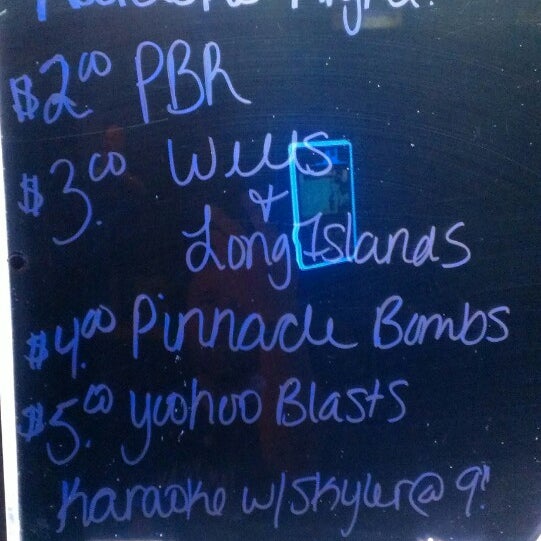 Night!
$2.00 PBR
$3.00 Wells
+
Long Islands
$4.00 Pinnacle Bombs
$5.00 yoohoo Blasts
Karaoke w/Skyler@ 9!